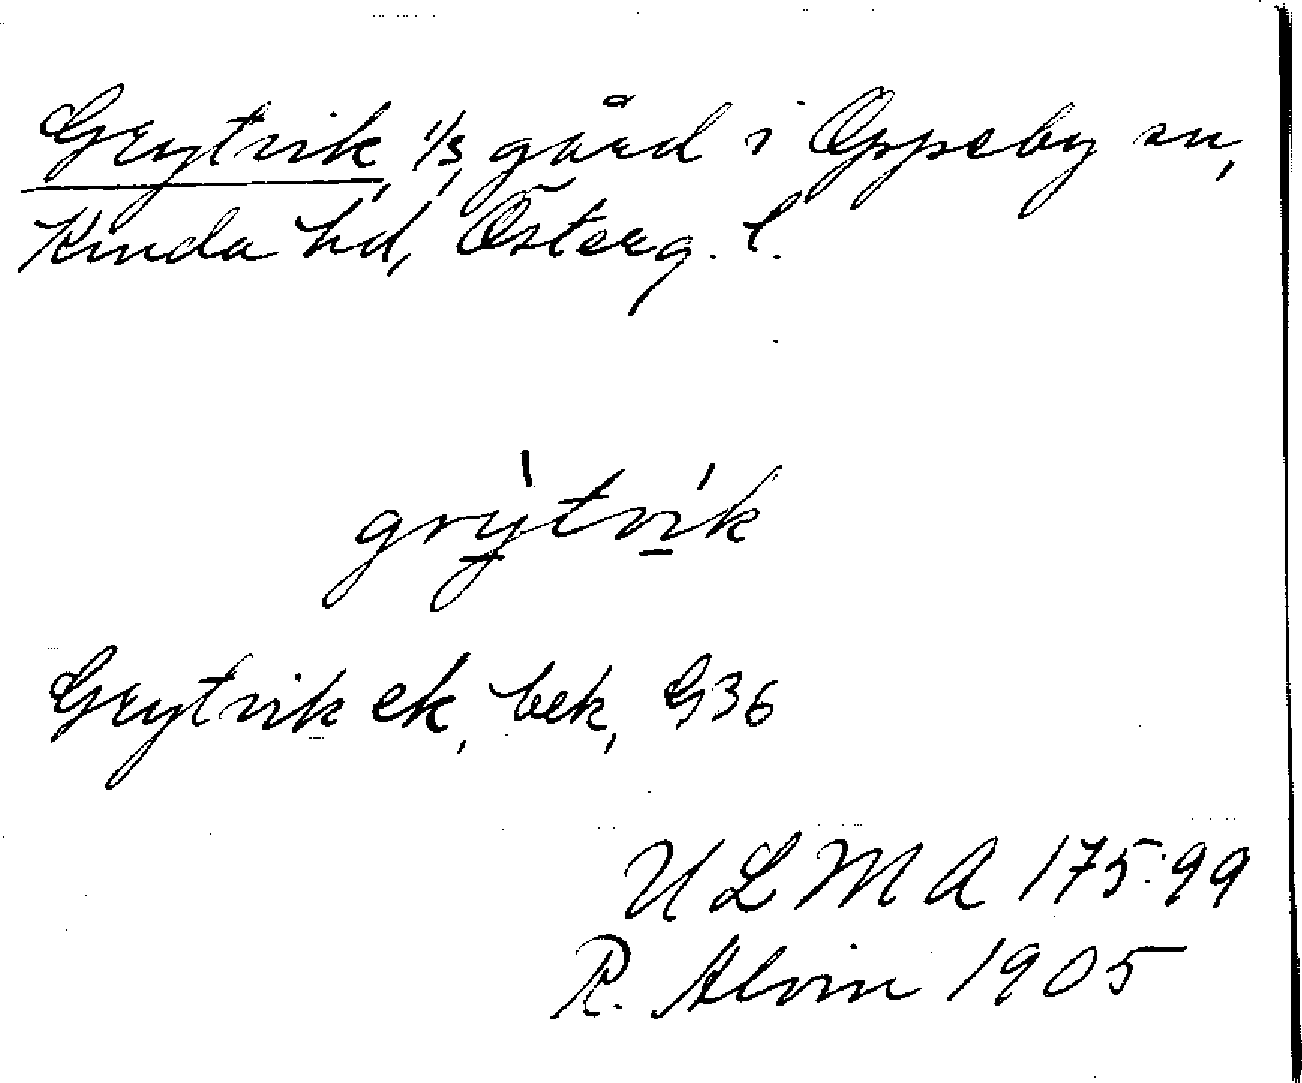 Grytvik, 1/3, gård i Oppeby sn,
Kinda hd, Österg. l.
grỳtvík
Grytvik ek, bek, G36
ULMA 175:99
R. Alvin 1905